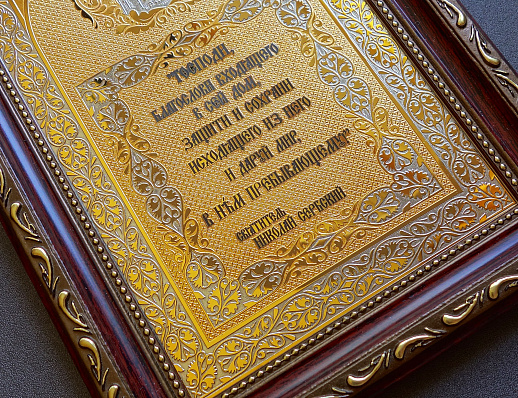 "Господи,
благослови входящего
в сей дом,
защити и сохрани
исходящего из него
и даруй мир
в нём пребывающему!"
Святитель
Николай Сербский